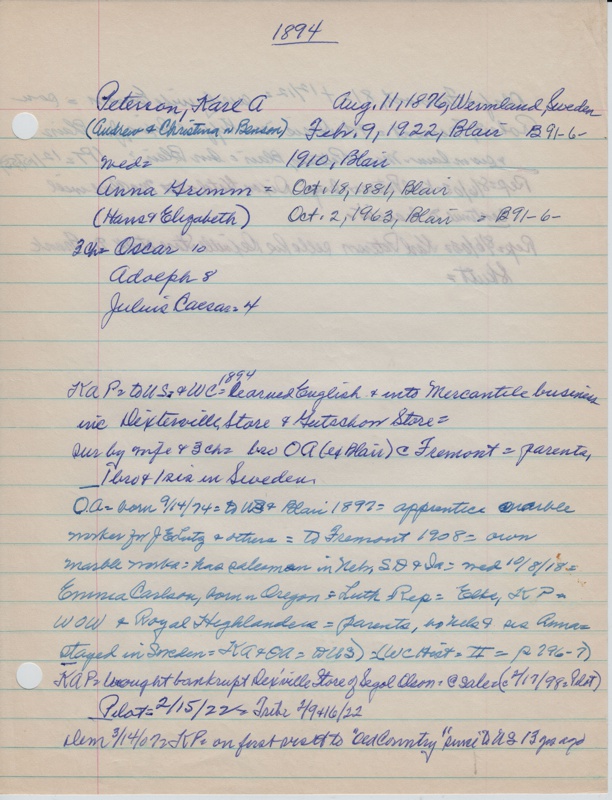 1894
Peterson, Karl A Aug. 11, 1876, Wermland, Sweden
(Andrew & Christina n Benson) Feb. 9, 1922, Blair B91-6-
wed= 1910, Blair
Anna Grimm = Oct. 18, 1881, Blair
(Hans & Elizabeth) Oct. 2, 1963, Blair = B91-6-
3 ch= Oscar 10
Adolph 8
Julius Caesar= 4
KAP= to US & WC= 1894 learned English & into Mercantile business
inc Dexterville Store & Gutschow Store=
sur by wife & 3 ch= bro OA (ex Blair) @ Fremont = parents,
1 bro & 1 sis in Sweden.
OA= born 9/14/74= to US & Blair 1892= apprentice marble
worker for J E Lutz & others = to Fremont 1908= own
marble works= has salesmen in Neb, SD & Ia= wed 10/8/18=
Emma Carlson, born n Oregon = Luth Rep= Elks, KP=
WOW & Royal Highlanders = parents, & sis Anna=
stayed in Sweden= KA & OA= to US) (WC Hist= II = p 296-7)
KAP= bought bankrupt Dexville Store of Olson= @ sale= (c 2/17/98= Pilot)
Pilot= 2/15/22= Tribe 2/9&16/22
Dem 3/14/07= KP= on first visit to "Old Country" since to US 13 yrs ago